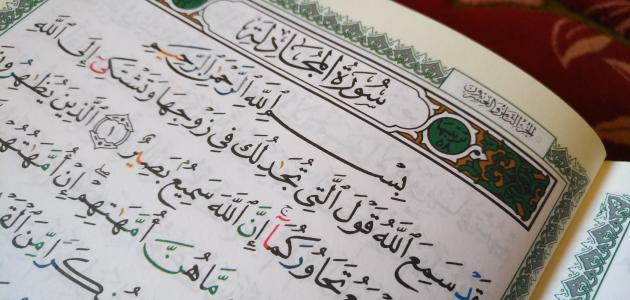 الجزء الثامن والعشرون
سُورَةُ المُجَادلَةِ
ترتيبها ٥٨
بِسْمِ ٱللَّهِ ٱلرَّحْمَٰنِ ٱلرَّحِيمِ
قَدْ سَمِعَ ٱللَّهُ قَوْلَ ٱلَّتِى تُجَٰدِلُكَ فِى زَوْجِهَا وَتَشْتَكِىٓ إِلَى ٱللَّهِ
تَحَاوُرَكُمَآ إِنَّ ٱللَّهَ سَمِيعٌۢ بَصِيرٌ ١ ٱلَّذِينَ يُظَٰهِرُونَ
مَّا هُنَّ أُمَّهَٰتِهِمْ إِنْ أُمَّهَٰتُهُمْ
مُنكَرًا مِّنَ ٱلْقَوْ